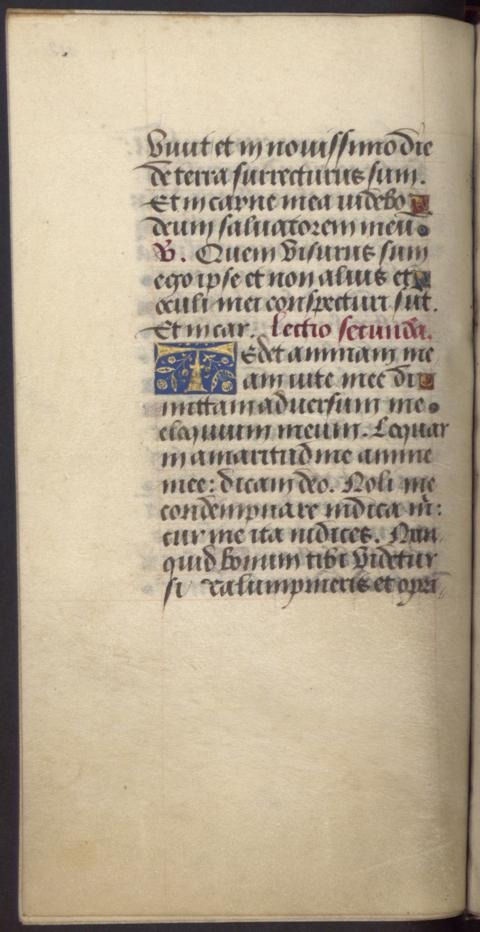 vivit et in novissimo die
de terra surrecturus sum.
Et in carne mea videbo
deum salvatorem meū
℣. Quem visurus sum
ego ipse et non alius et
oculi mei conspecturi sūt.
Et in car. Lectio secunda.
TEdet animam me
am vite mee di
mittam adversum me
eloquium meum. Loquar
in amaritudīe anime
mee: dicam deo. Noli me
condempnare indica m̄:
cur me ita iudices. Nun
quid bonum tibi videtur
si calumpnieris et opri